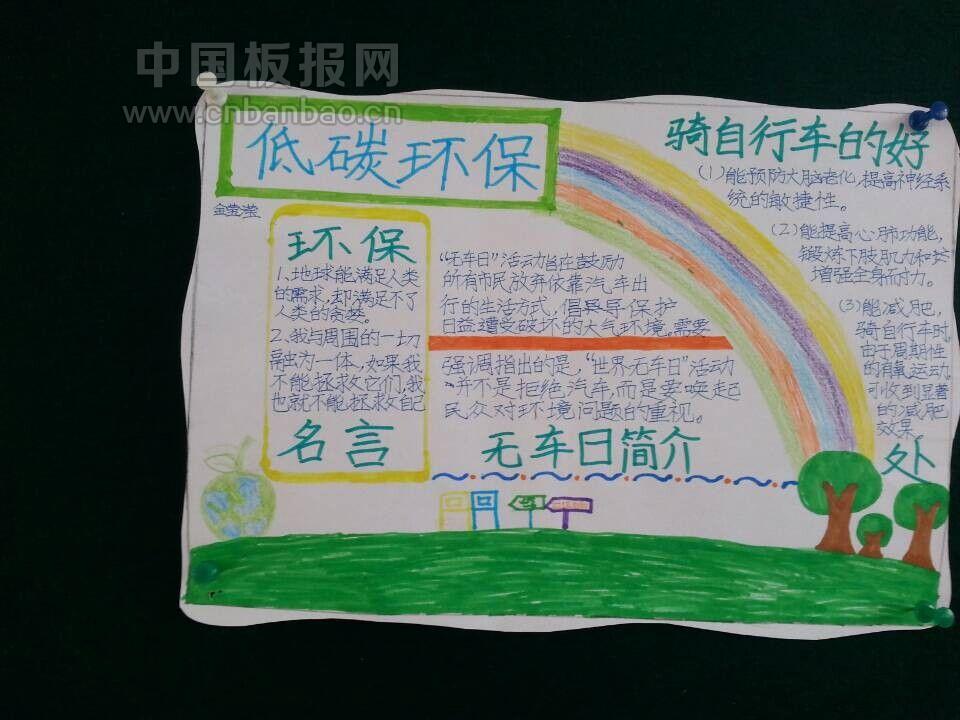 中国板报网
www.cnbanbao.cn
低碳环保
金莹滢
环保
1、地球能满足人类
的需求，却满足不了
人类的贪婪。
2、我与周围的一切
融为一体，如果我
不能拯救它们，我
也就不能拯救自己
名言
“无车日”活动旨在鼓励
所有市民放弃依靠汽车出
行的生活方式，倡导导保护
日益遭受破坏的大气环境，需要
强调指出的是，“世界无车日”活动
并不是拒绝汽车，而是要唤起
民众对环境问题的重视。
无车日简介
骑自行车的好
（1）能预防大脑老化，提高神经系
统的敏捷性。
（2）能提高心肺功能，
锻炼下肢肌力和
增强全身耐力。
（3）能减肥，
骑自行车时，
由于周期性
的有氧运动，
可收到显著
的减肥
效果
处